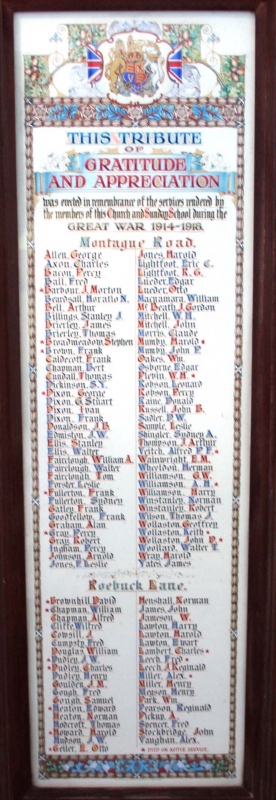 THIS TRIBUTE
OF
GRATITUDE
AND APPRECIATION
was erected in remembrance of the services rendered by
the members of this Church and Sunday School during the
GREAT WAR 1914-1918.
Montague Road.
Allen, George
Axon, Charles
Baron, Percy
Ball, Fred
* Barbour, J. Morton
Beardsall, Horatio N.
Bell, Arthur
Billings, Stanley J.
Brierley, James
Brierley, Thomas
* Broadmeadow, Stephen
* Brown, Frank
Caldecott, Frank
Chapman, Bert
Cundall, Thomas
Dickinson, S.Y.
* Dixon, George
Dixon, G. Stuart
Dixon, Ivan
Dixon, Frank
Donaldson, J.B.
Edmiston, J.W.
Ellis, Stanley
Ellis, Walter
Fairclough, William A.
Fairclough, Walter
Fairclough, Tom
Forster, Leslie
* Fullerton, Frank
Fullerton, Sydney
Gatley, Frank
Goodfellow, Frank
Graham, Alan
* Gray, Percy
Gray, Robert
Ingham, Percy
Johnson, Arnold
Jones, P. Leslie
Jones, Harold
Lightfoot, Eric C.
Lightfoot, R. G.
Lueder, Edgar
Lueder, Otto
Macnamara, William
Mc Beath, J. Gordon
Mitchell, W. H.
Mitchell, John
Morris, Claude
Mumby, Harold
Mumby, John P.
Oakes, Wm.
Osborne, Edgar
Plevin, W.H.
Robson, Leonard
Robson, Percy
Raine, Donald
Russell, John B.
Sadler, P.W.
Sample, Leslie
Shingler, Sydney A.
Thompson, J. Arthur
Veitch, Alfred P.F.
Wainwright, E.M.
Wheeldon, Herman
Williamson, G.W.
Williamson, A. H.
Williamson, Harry
Winstanley, Norman
Winstanley, Robert
Wilson, Thomas J.
Wollaston, Geoffrey
Wollaston, Keith
Wollaston, John D.
Woollard, Walter T.
Wray, Harold
Yates, James
Roebuck Lane.
* Brownhill, David
* Chapman, William
Chapman, Alfred
Cliffe, Wilfred
Cowsill, J.
Cumpsty, Fred
Douglas, William
* Dudley, J.W.
* Pudley, Charles
Pudley, Henry
Goulden, J.H.
Gough, Fred
Gough, Samuel
* Heaton, Edward
Heaton, Norman
Hodcroft, Thomas
* Howard, Harold
Hudson, J.W.
* Geiler, E. Otto
Henshall, Norman
James, John
Jameson, W.
Lawton, Harry
Lawton, Harold
Lawton, Ewart
Lambert, Charles
Leech, Fred
Leech, J. Reginald
Miller, Alex.
Miller, Henry
Meyson, Henry
Park, Wm.
Pearson, Reginald
Pickup, A.
Spencer, Fred
Stockbridge, John
Vaughan, Alex.
* DIED ON ACTIVE SERVICE.